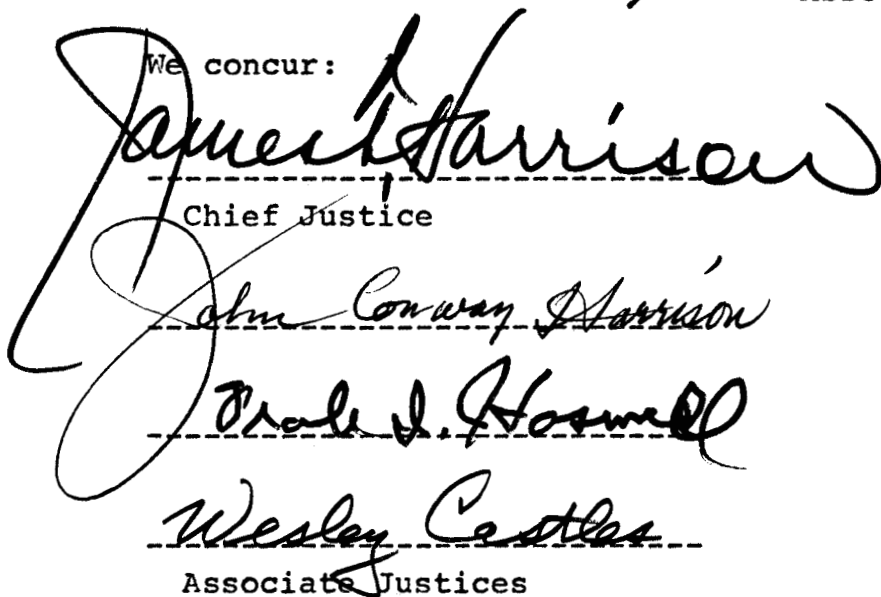 We concur:
James T. Harrison
Chief Justice
John Conway Harrison
Frank I. Haswell
Wesley Castles
Associate Justices